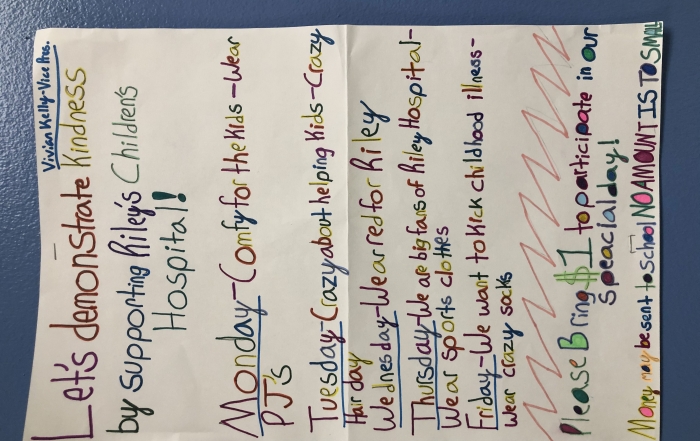 Vivian Kelly-Vice Pres.
Let's demonstrate Kindness
by supporting Riley's Children's
Hospital!
Monday-Comfy for the Kids-Wear
PJ's
Tuesday-Crazy about helping Kids-Crazy
Hair day
Wednesday-Wear red for Riley
Thursday-We are big fans of Riley Hospital-
Wear sports clothes
Friday-We want to Kick childhood illness-
Wear crazy socks
Please Bring $1 to participate in our
speacial day!
Money may be sent to school NO AMOUNT IS TO SMALL